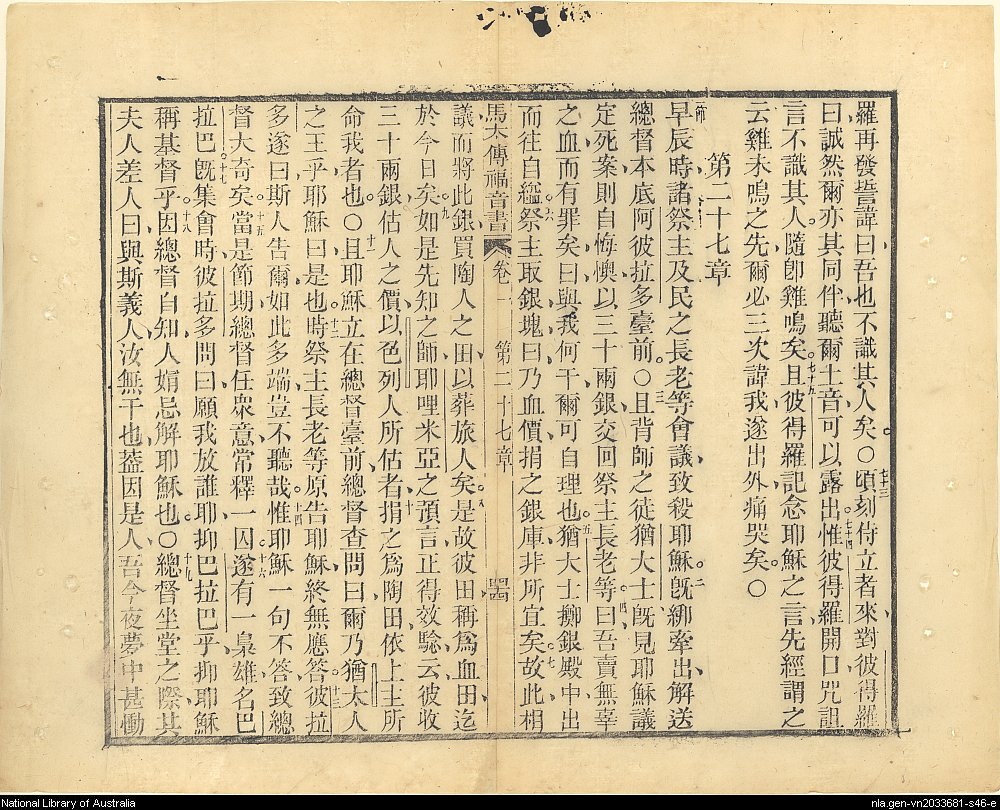 羅再發誓諱曰吾也不識其人矣○頃刻侍立者來對彼得羅
七三
曰誠然爾亦其同伴聽爾土音可以露出惟彼得羅開口咒詛
七十四
言不識其人隨卽雞鳴矣且彼得羅記念耶穌之言先經謂之
七十五
云雞未鳴之先爾必三次諱我遂出外痛哭矣○
第二十七章
一節
早辰時諸祭主及民之長老等會議致殺耶穌旣綁牽出解送
二
總督本底阿彼拉多臺前○且背師之徒猶大士旣見耶穌議
三
定死案則自悔懊以三十兩銀交回祭主長老等曰吾賣無辜
四
之血而有罪矣曰與我何干爾可自理也猶大士擲銀殿中出
五
而往自縊祭主取銀塊曰乃血價捐之銀庫非所宜矣故此相
六 七
馬太傳福音書 卷一 第二十七章
議而將此銀買陶人之田以葬旅人矣是故彼田稱爲血田迄
八
於今日矣如是先知之師耶哩米亞之預言正得效騐云彼收
九
三十兩銀估人之價以色列人所估者捐之爲陶田依上主所
十
命我者也○且耶穌立在總督臺前總督查問曰爾乃猶太人
十一
之王乎耶穌曰是也時祭主長老等原告耶穌終無應答彼拉
十二 十三
多遂曰斯人告爾如此多端豈不聽哉惟耶穌一句不答致總
十四
督大奇矣當是節期總督任衆意常釋一囚遂有一梟雄名巴
十五 十六
拉巴旣集會時彼拉多問曰願我放誰耶抑巴拉巴乎抑耶穌
十七
稱基督乎因總督自知人媢忌解耶穌也○總督坐堂之際其
十八 十九
夫人差人曰與斯義人汝無干也葢因是人吾今夜夢中甚慟
National Library of Australia
nla.gen-vn2033681-s46-e